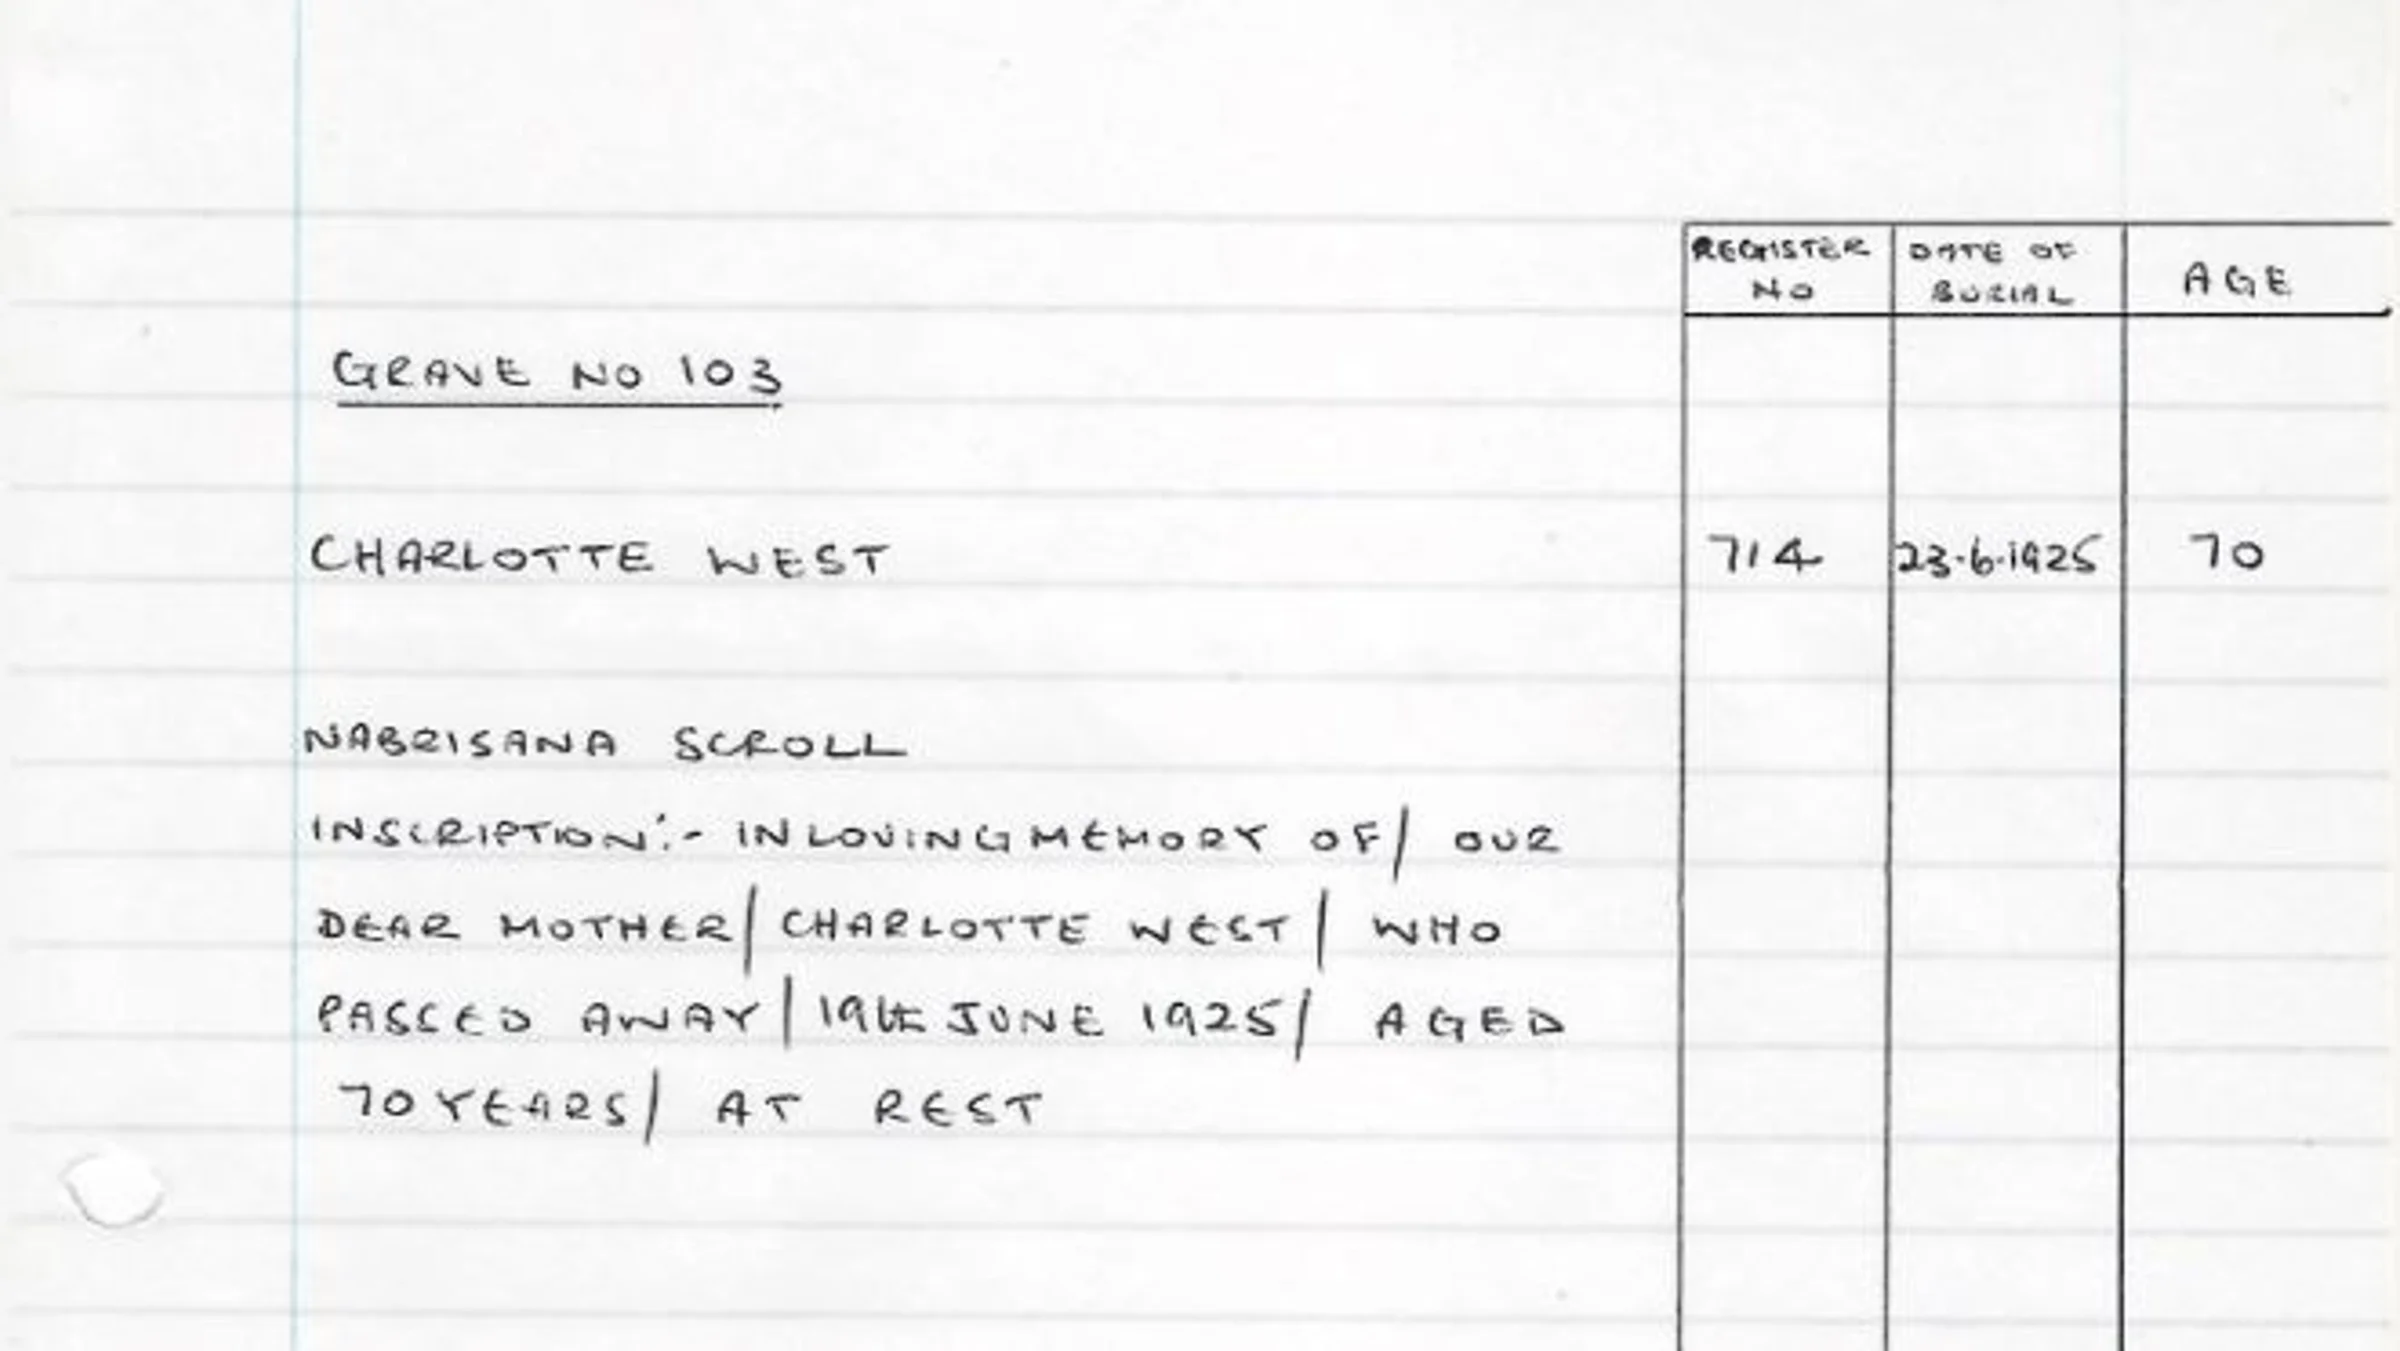 REGISTER NO DATE OF BURIAL AGE
GRAVE NO 103
CHARLOTTE WEST 714 23·6·1925 70
NABRISANA SCROLL
INSCRIPTION:- IN LOVING MEMORY OF/ OUR
DEAR MOTHER/ CHARLOTTE WEST/ WHO
PASSED AWAY/ 19th JUNE 1925/ AGED
70 YEARS/ AT REST